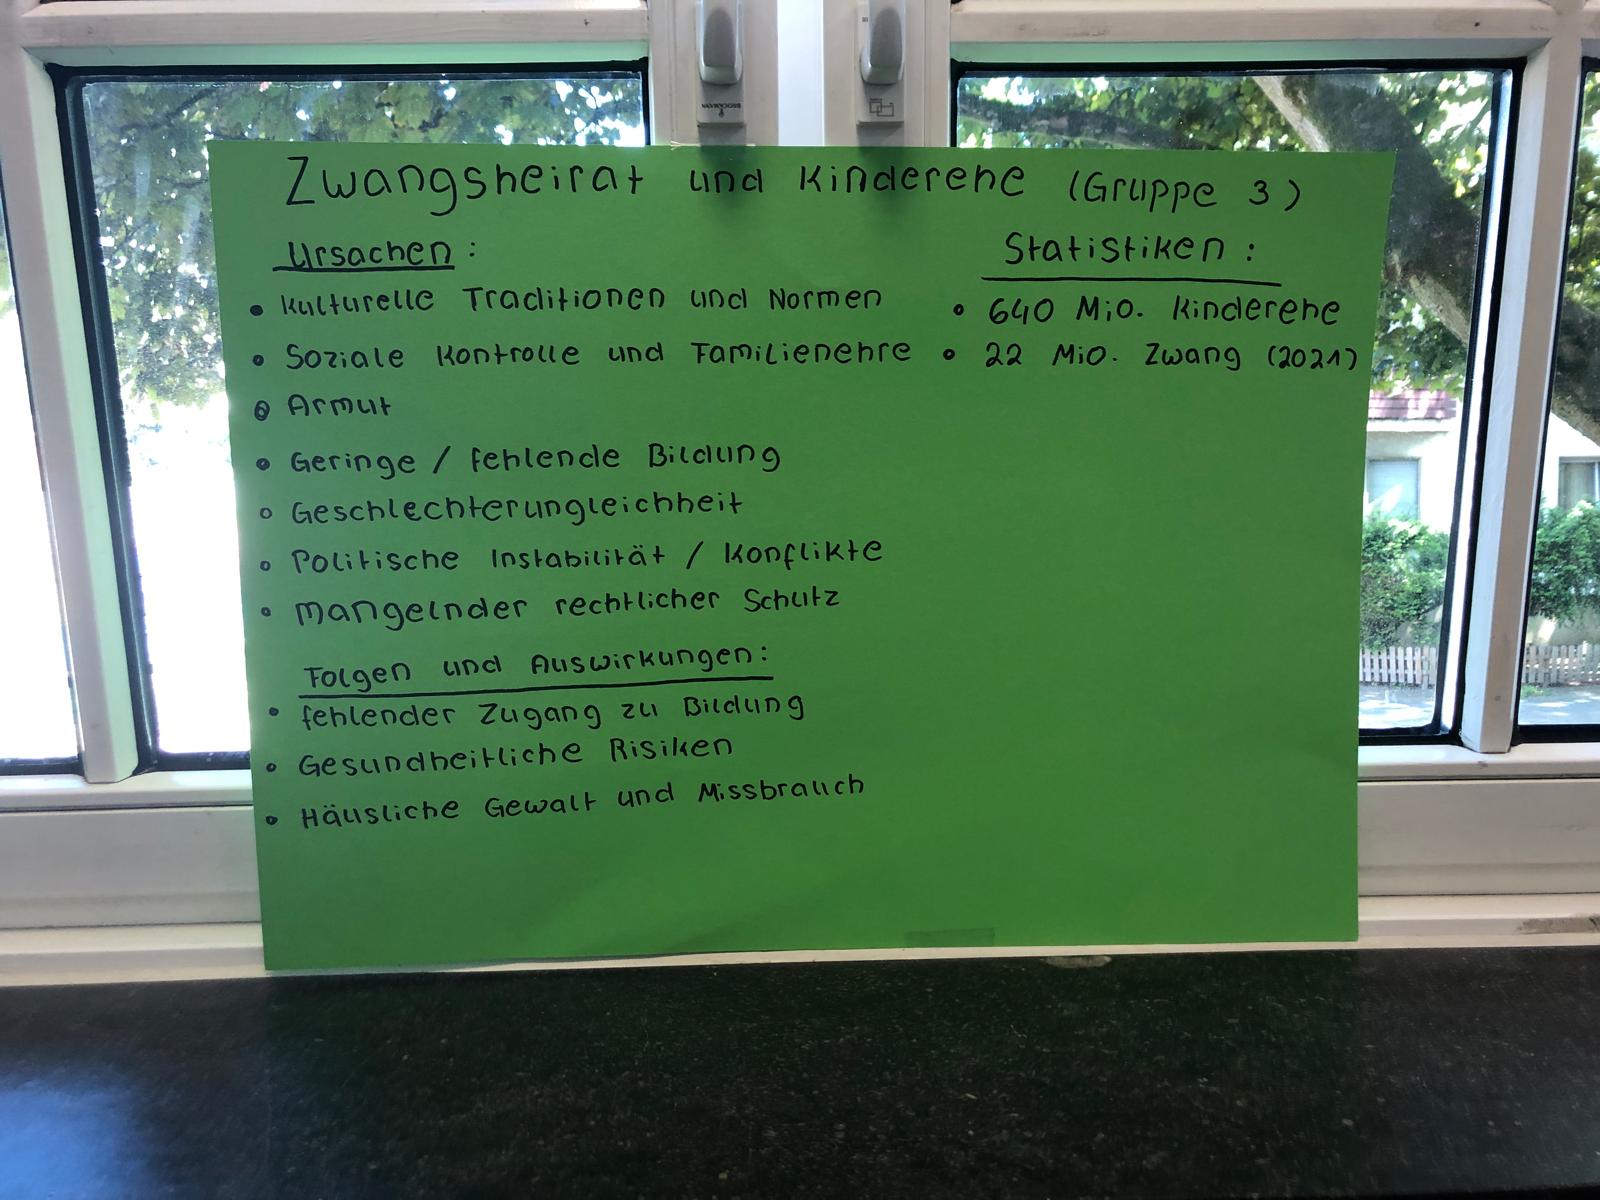 Zwangsheirat und Kinderehe (Gruppe 3)
Ursachen:
• Kulturelle Traditionen und Normen
• Soziale Kontrolle und Familienehre
• Armut
• Geringe / fehlende Bildung
• Geschlechterungleichheit
• Politische Instabilität / Konflikte
• Mangelnder rechtlicher Schutz
Folgen und Auswirkungen:
• fehlender Zugang zu Bildung
• Gesundheitliche Risiken
• Häusliche Gewalt und Missbrauch
Statistiken:
• 640 Mio. Kinderehe
• 22 Mio. Zwang (2021)
BROCKMANN